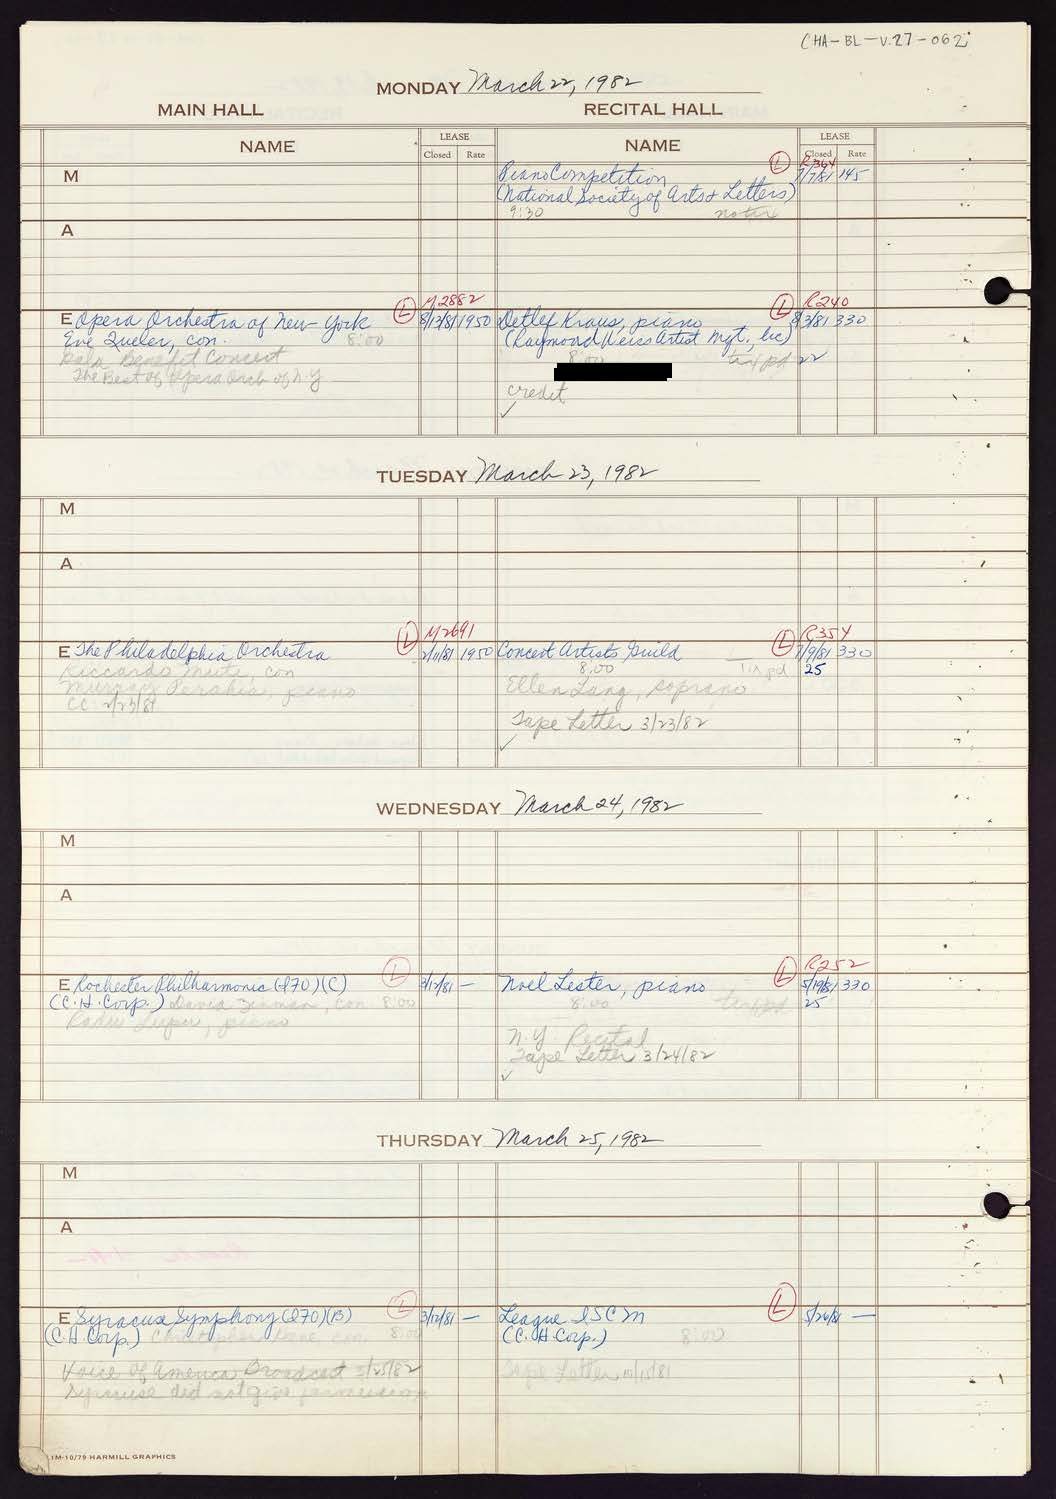 CHA-BL-V.27-062
MONDAY March 22, 1982
MAIN HALL RECITAL HALL
NAME LEASE NAME LEASE
Closed Rate Closed Rate
M Piano Competition L R364 7/7/81 145
(National Society of Arts & Letters)
9:30
A
E Opera Orchestra of New York L M2882 8/13/81 1950 Detlef Kraus, piano L R240 8/3/81 330
Eve Queler, con. 8:00 (Raymond Weiss Artist Mgt., Inc)
Gala Benefit Concert 8:00 tix pd 22
The Best of Opera Orch of N Y
credit
✓
TUESDAY March 23, 1982
M
A
E The Philadelphia Orchestra L M2691 2/11/81 1950 Concert Artists Guild L R354 7/9/81 330
Riccardo Muti, con 8:00 Tix pd 25
Murray Perahia, piano Ellen Lang, soprano
CC 2/23/81
Tape Letter 3/23/82
✓
WEDNESDAY March 24, 1982
M
A
E Rochester Philharmonic (I70)(C) L 3/12/81 — Noel Lester, piano L R252 5/19/81 330
(C.H. Corp.) David Zinman, con 8:00 8:00 tix pd 25
Radu Lupu, piano
N.Y. Recital
Tape Letter 3/24/82
✓
THURSDAY March 25, 1982
M
A
E Syracuse Symphony (I70)(B) L 3/12/81 — League ISCM L 5/26/81 —
(C.H. Corp.) Christopher Keene, con. 8:00 (C.H. Corp.) 8:00
Voice of America Broadcast 3/25/82 Tape Letter 10/15/81
Syracuse did not give permission
1M-10/79 HARMILL GRAPHICS